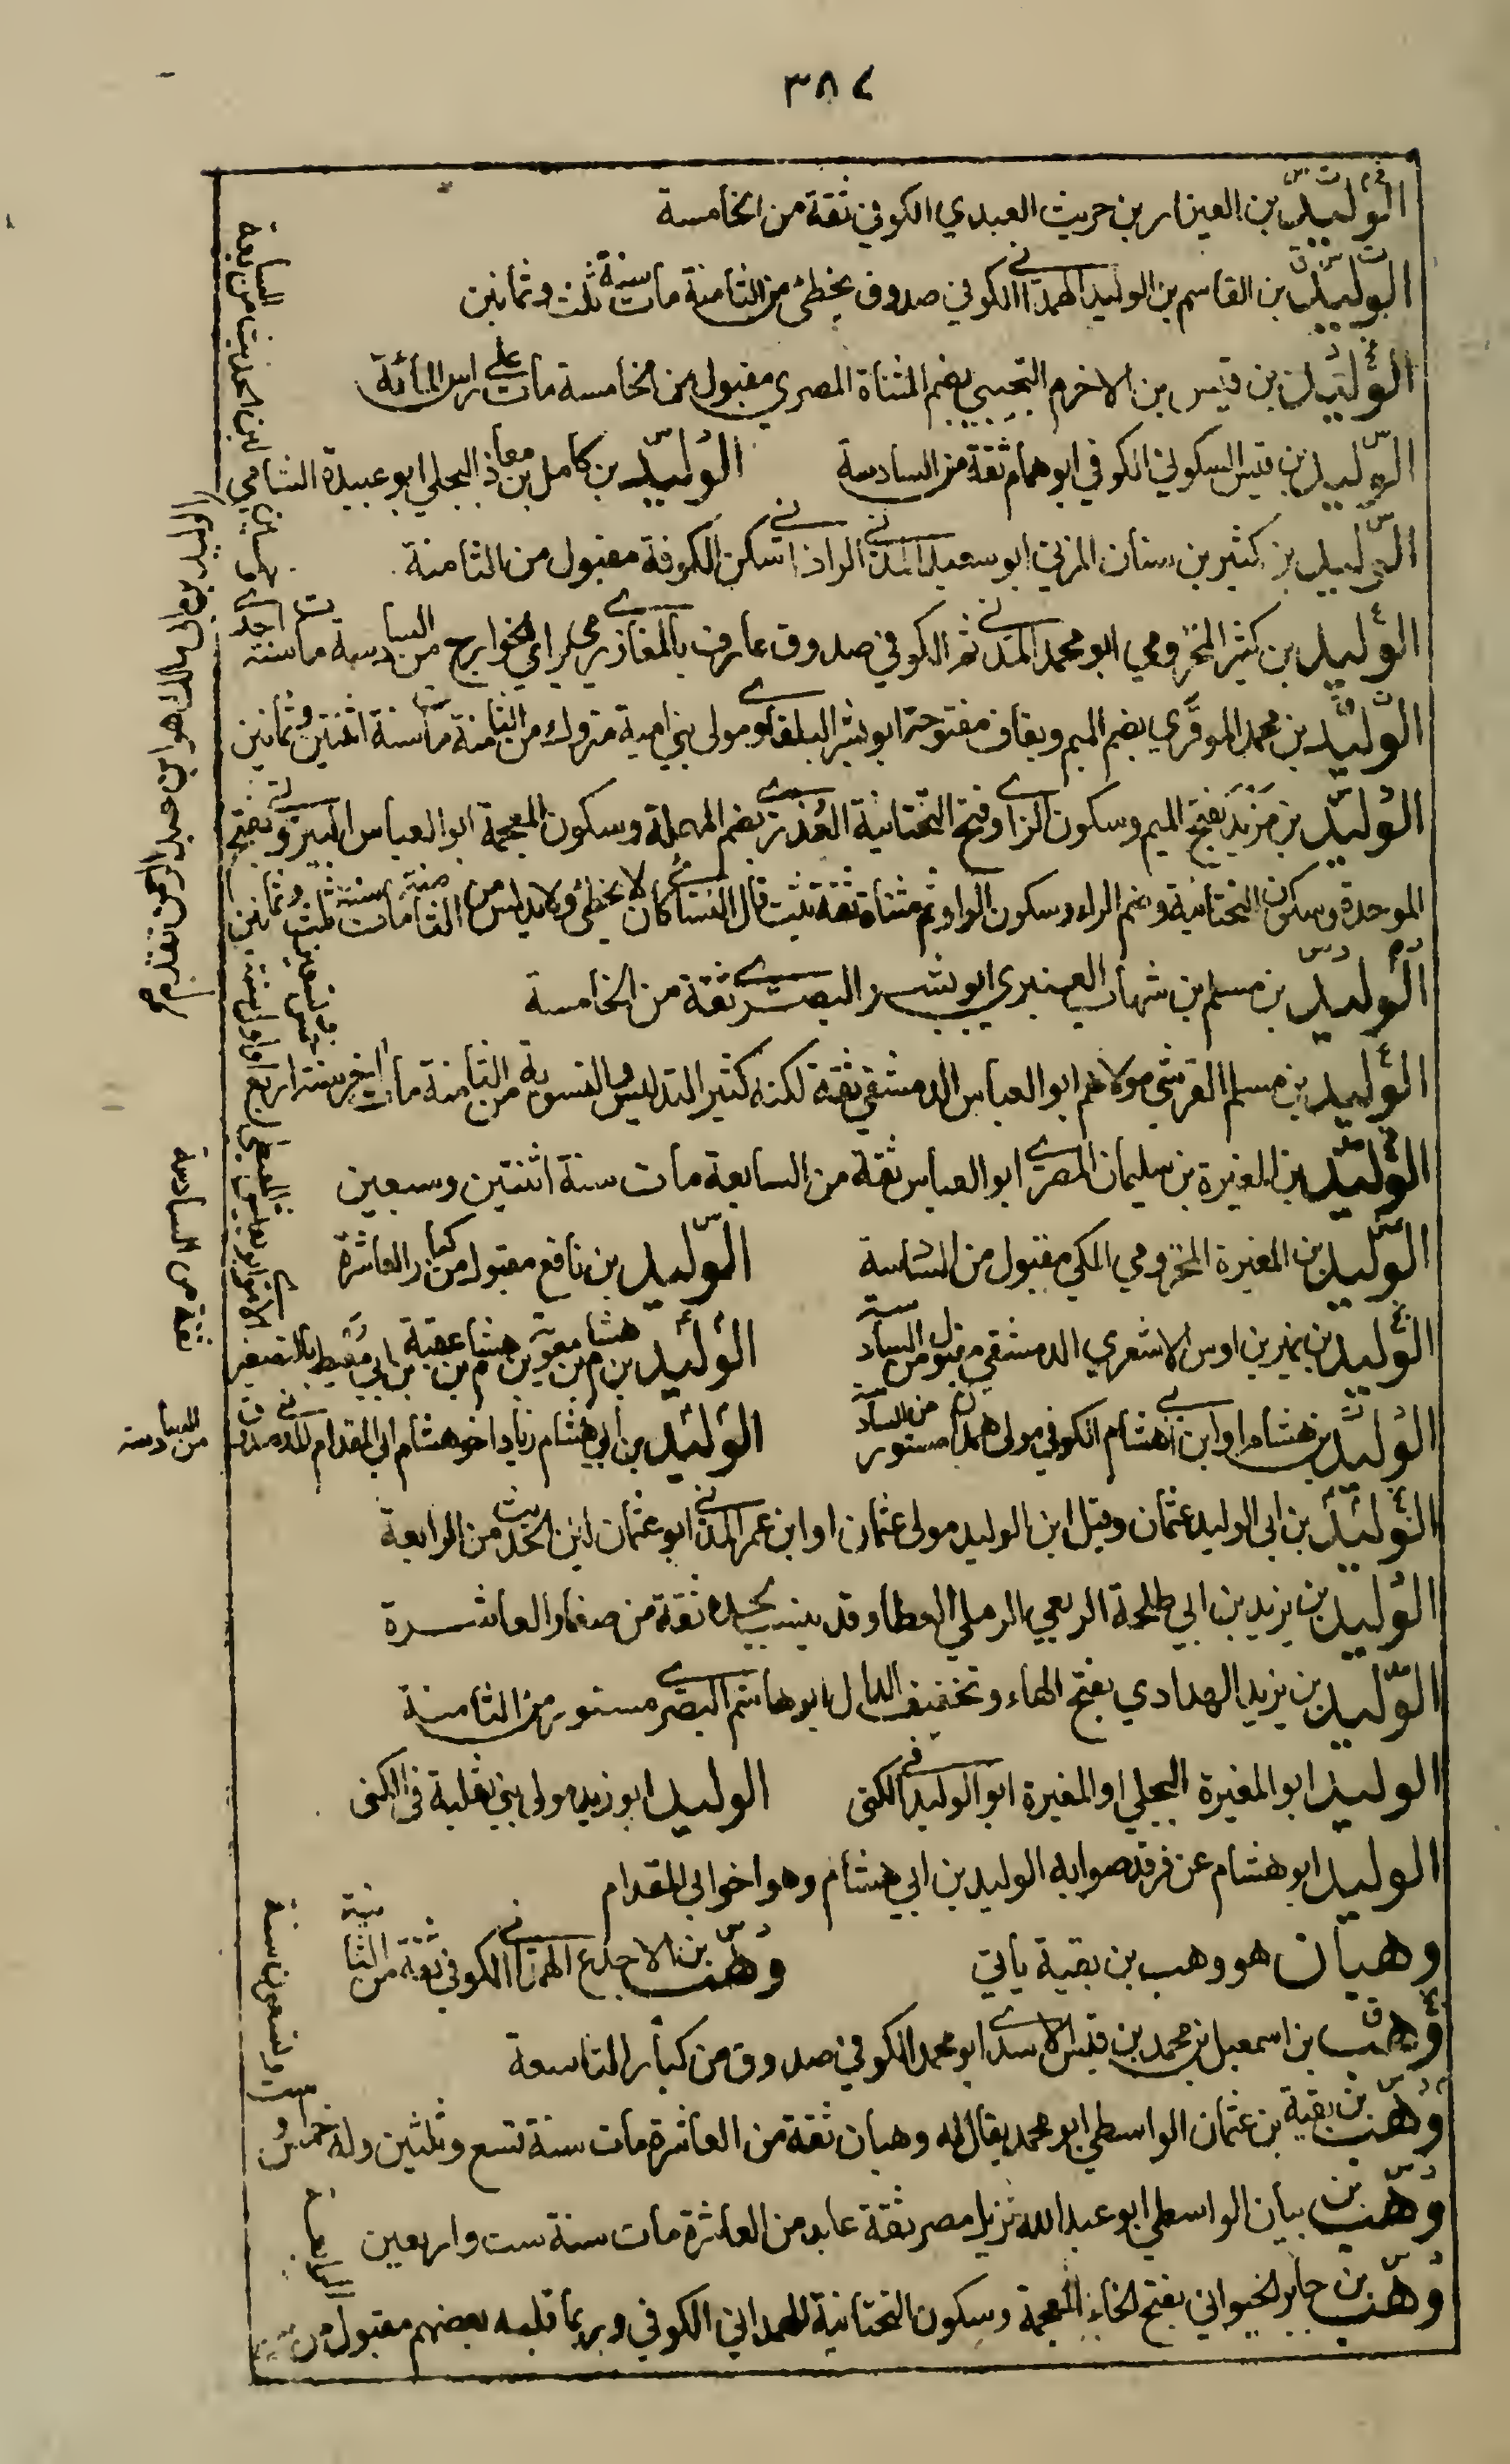 ٣٨٤
الوليد بن العيزار بن حريث العبدي الكوفي ثقة من الخامسة
الوليد بن القاسم بن الوليد الهمداني الكوفي صدوق يخطئ من الثامنة مات سنة ثلث وثمانين
الوليد بن قيس بن الاخرم التجيبي بضم المثناة المصري مقبول من الخامسة مات على راس المائة
الوليد بن قيس السكوني الكوفي ابو همام ثقة من السادسة الوليد بن كامل بن معاذ البجلي ابو عبيدة الشامي
لين الحديث من السابعة
الوليد بن كثير بن سنان المزني ابو سعيد المدني الراذاني سكن الكوفة مقبول من الثامنة
الوليد بن كثير المخزومي ابو محمد المدني ثم الكوفي صدوق عارف بالمغازي رمي براي الخوارج من السادسة مات سنة احدى وخمسين
الوليد بن ابي مالك هو ابن عبد الرحمن تقدم
الوليد بن محمد الموقري بضم الميم وبقاف مفتوحة ابو بشر البلقاوي مولى بني امية متروك من الثامنة مات سنة اثنتين وثمانين
الوليد بن مزيد بفتح الميم وسكون الزاي وفتح التحتانية العذري بضم المهملة وسكون المعجمة ابو العباس البيروتي بفتح
الموحدة وسكون التحتانية وضم الراء وسكون الواو ثم مثناة ثقة ثبت قال النسائي كان لا يخطئ ولا يدلس من الثامنة مات سنة ثلث وثمانين
الوليد بن مسلم بن شهاب العنبري ابو بشر البصري ثقة من الخامسة
الوليد بن مسلم القرشي مولاهم ابو العباس الدمشقي ثقة لكنه كثير التدليس والتسوية من الثامنة مات اخر سنة اربع
او اول سنة خمس وتسعين
الوليد بن المغيرة بن سليمان المصري ابو العباس ثقة من السابعة مات سنة اثنتين وسبعين
الوليد بن المغيرة المخزومي المكي مقبول من السادسة الوليد بن نافع مقبول من كبار العاشرة
الوليد بن نمير بن اوس الاشعري الدمشقي مقبول من السادسة الوليد بن هشام بن معوية بن هشام بن عقبة بن ابي معيط بالتصغير
الاموي ابو يعيش المعيطي ثقة من السادسة
الوليد بن هشام او ابن ابي هشام الكوفي مولى همدان مستور من السادسة الوليد بن ابي هشام زياد اخو هشام ابي المقدام المدني صدوق من السادسة
الوليد بن ابي الوليد عثمان وقيل ابن الوليد مولى عثمان او ابن عمر المدني ابو عثمان لين الحديث من الرابعة
الوليد بن يزيد بن ابي طلحة الربعي الرملي العطار وقد ينسب لجده ثقة من صغار العاشرة
الوليد بن يزيد الهدادي بفتح الهاء وتخفيف الدال ابو هاشم البصري مستور من الثامنة
الوليد ابو المغيرة البجلي او المغيرة ابو الوليد في الكنى الوليد ابو زيد مولى بني ثعلبة في الكنى
الوليد ابو هشام عن فرقد صوابه الوليد بن ابي هشام وهو اخو ابي المقدام
وهبان هو وهب بن بقية ياتي وهب بن الاجدع الهمداني الكوفي ثقة من الثانية
وهب بن اسمعيل بن محمد بن قيس الاسدي ابو محمد الكوفي صدوق من كبار التاسعة
وهب بن بقية بن عثمان الواسطي ابو محمد يقال له وهبان ثقة من العاشرة مات سنة تسع وثلثين وله خمس
او ست وتسعون سنة
وهب بن بيان الواسطي ابو عبد الله نزيل مصر ثقة عابد من العاشرة مات سنة ست واربعين
وهب بن جابر الخيواني بفتح الخاء المعجمة وسكون التحتانية الهمداني الكوفي وربما قلبه بعضهم مقبول من
الرابعة